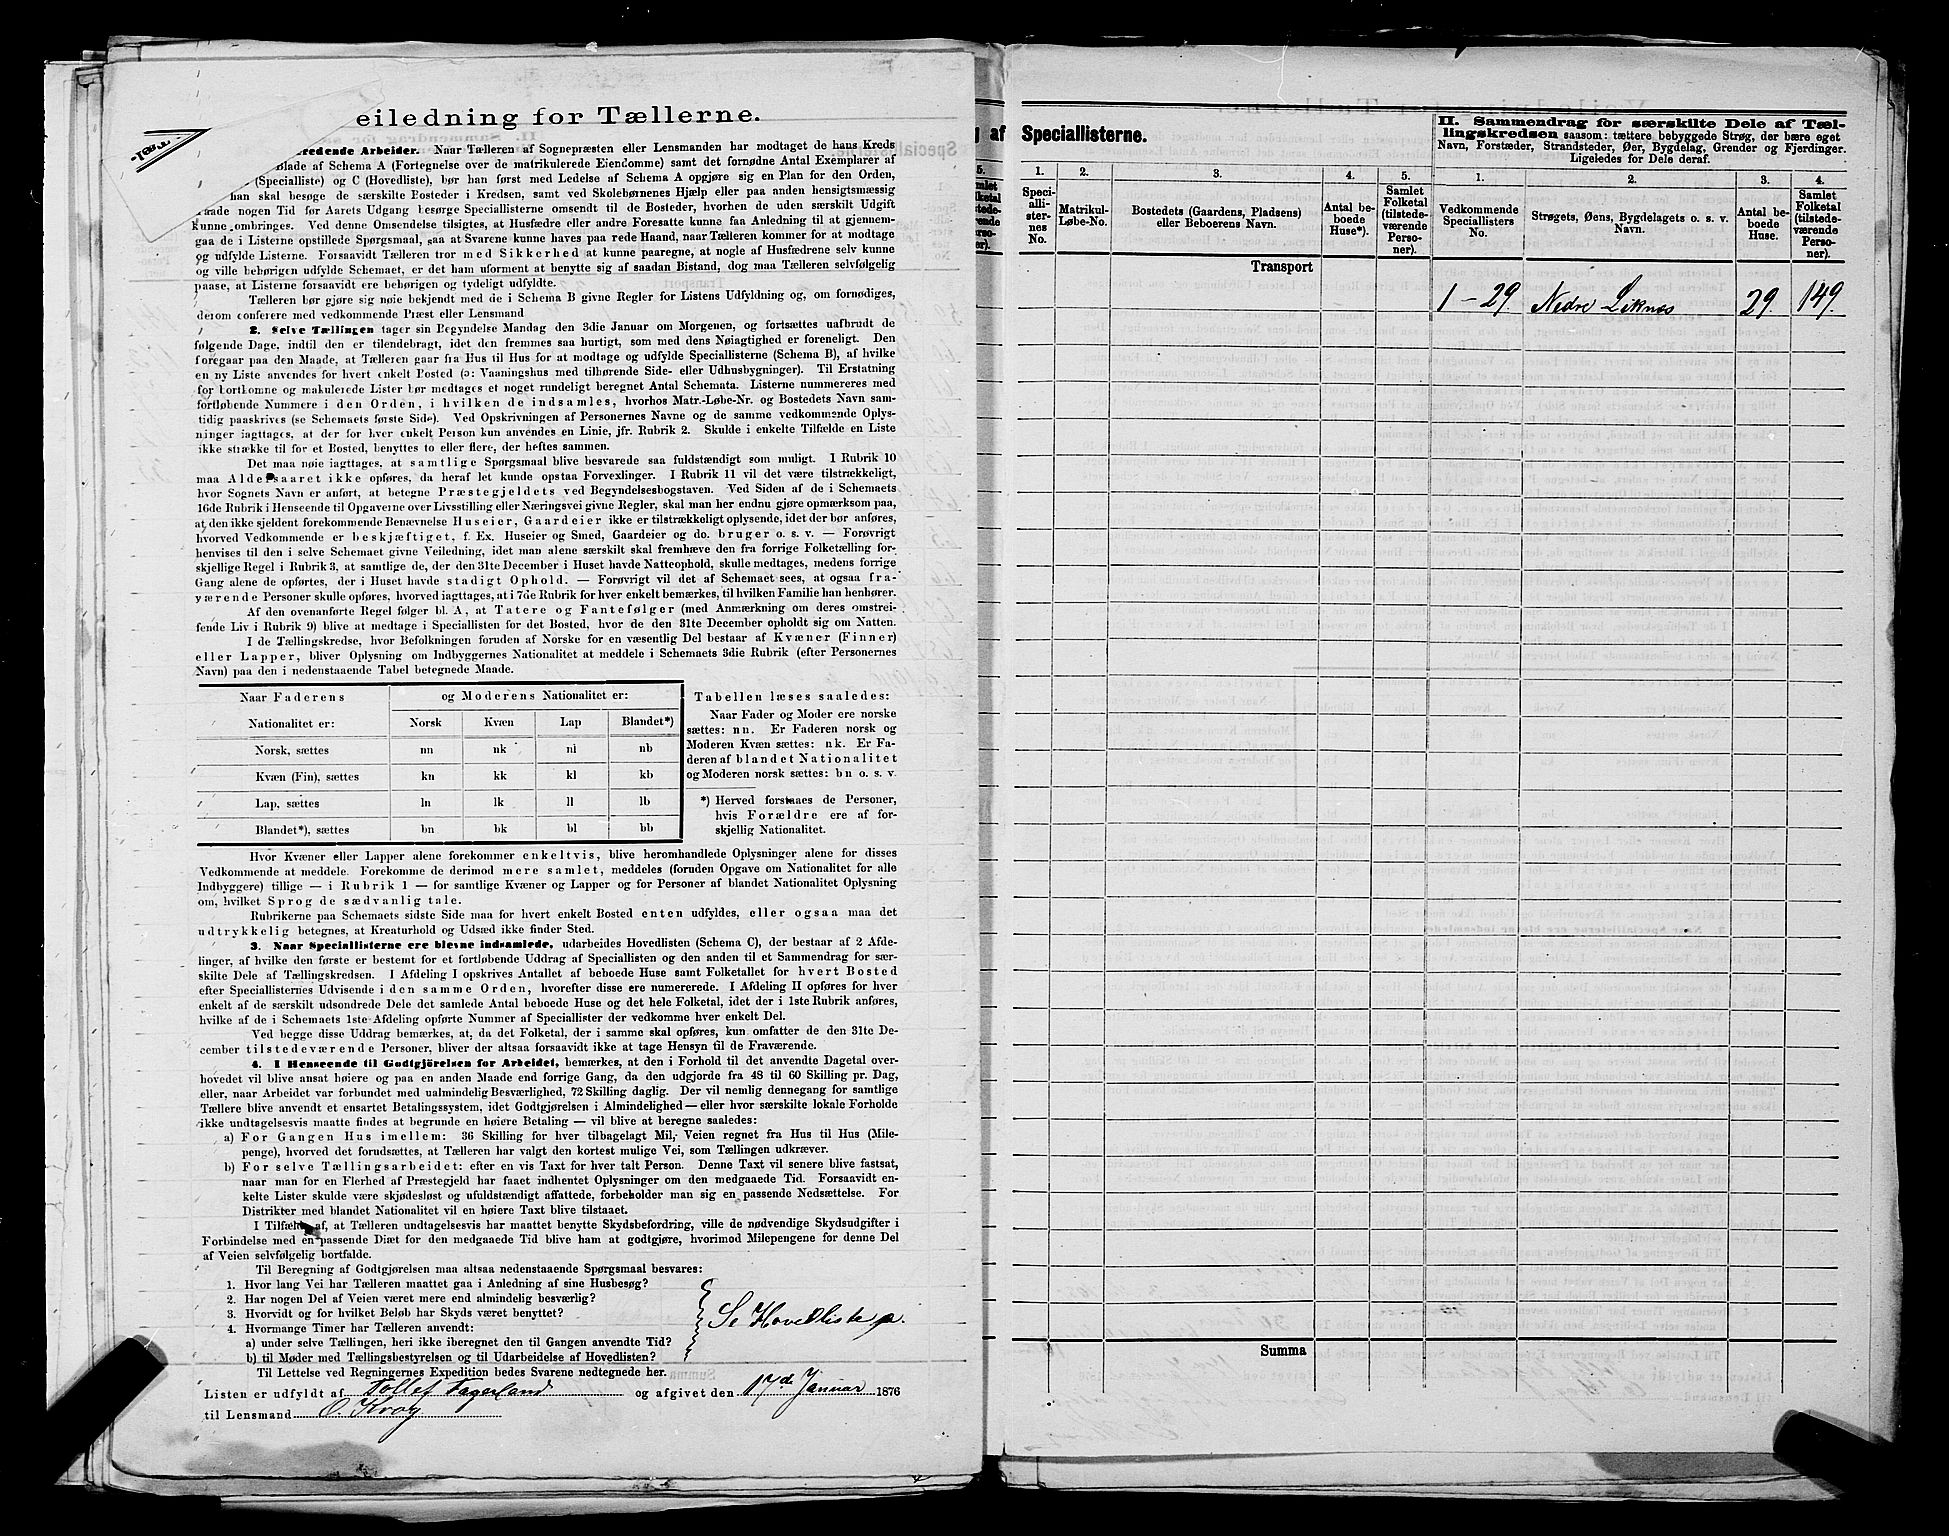 eiledning for Tællerne.
Tæl-
redende Arbeider. Naar Tælleren af Sognepræsten eller Lensmanden har modtaget de hans Kreds
Blade af Schema A (Fortegnelse over de matrikulerede Eiendomme) samt det fornødne Antal Exemplarer af
(Specialliste) og C (Hovedliste), bør han først med Ledelse af Schema A opgjøre sig en Plan for den Orden,
han skal besøge de særskilte Bosteder i Kredsen, samt ved Skolebørnenes Hjælp eller paa anden hensigtsmæssig
Maade nogen Tid før Aarets Udgang besørge Speciallisterne omsendt til de Bosteder, hvorhen de uden særskilt Udgift
kunne ombringes. Ved denne Omsendelse tilsigtes, at Husfædre eller andre Foresatte kunne faa Anledning til at gjennem-
gaa de i Listerne opstillede Spørgsmaal, saa at Svarene kunne haves paa rede Haand, naar Tælleren kommer for at modtage
og udfylde Listerne. Forsaavidt Tælleren tror med Sikkerhed at kunne paaregne, at nogle af Husfædrene selv kunne
og ville behørigen udfylde Schemaet, er det ham uforment at benytte sig af saadan Bistand, dog maa Tælleren selvfølgelig
paase, at Listerne forsaavidt ere behørigen og tydeligt udfyldte.
Tælleren bør gjøre sig nøie bekjendt med de i Schema B givne Regler for Listens Udfyldning og, om fornødiges,
derom conferere med vedkommende Præst eller Lensmand
2. Selve Tællingen tager sin Begyndelse Mandag den 3die Januar om Morgenen, og fortsættes uafbrudt de
følgende Dage, indtil den er tilendebragt, idet den fremmes saa hurtigt, som med dens Nøiagtighed er foreneligt. Den
foregaar paa den Maade, at Tælleren gaar fra Hus til Hus for at modtage og udfylde Speciallisterne (Schema B), af hvilke
en ny Liste anvendes for hvert enkelt Bosted (ɔ: Vaaningshus med tilhørende Side- eller Udhusbygninger). Til Erstatning
for bortkomne og makulerede Lister bør medtages et noget rundeligt beregnet Antal Schemata. Listerne nummereres med
fortløbende Nummere i den Orden, i hvilken de indsamles, hvorhos Matr.-Løbe-Nr. og Bostedets Navn sam-
tidig paaskrives (se Schemaets første Side). Ved Opskrivningen af Personernes Navne og de samme vedkommende Oplys-
ninger iagttages, at der for hver enkelt Person kun anvendes en Linie, jfr. Rubrik 2. Skulde i enkelte Tilfælde en Liste
ikke strække til for et Bosted, benyttes to eller flere, der heftes sammen.
Det maa nøie iagttages, at samtlige Spørgsmaal blive besvarede saa fuldstændigt som muligt. I Rubrik 10
maa Aldersaaret ikke opføres, da heraf let kunde opstaa Forvexlinger. I Rubrik 11 vil det være tilstrækkeligt,
hvor Sognets Navn er anført, at betegne Præstegjeldets ved Begyndelsesbogstaven. Ved Siden af de i Schemaets
16de Rubrik i Henseende til Opgaverne over Livsstilling eller Næringsvei givne Regler, skal man her endnu gjøre opmærksom paa,
at den ikke sjeldent forekommende Benævnelse Huseier, Gaardeier ikke er tilstrækkeligt oplysende, idet der bør anføres,
hvorved Vedkommende er beskjæftiget, f. Ex. Huseier og Smed, Gaardeier og do. bruger o. s. v. — Forøvrigt
henvises til den i selve Schemaet givne Veiledning, idet man alene særskilt skal fremhæve den fra forrige Folketælling for-
skjellige Regel i Rubrik 3, at samtlige de, der den 31te December i Huset havde Natteophold, skulle medtages, medens forrige
Gang alene de opførtes, der i Huset havde stadigt Ophold. — Forøvrigt vil det af Schemaet sees, at ogsaa fra-
værende Personer skulle opføres, hvorved iagttages, at i 7de Rubrik for hver enkelt bemærkes, til hvilken Familie han henhører.
Af den ovenanførte Regel følger bl. A, at Tatere og Fantefølger (med Anmærkning om deres omstrei-
fende Liv i Rubrik 9) blive at medtage i Speciallisten for det Bosted, hvor de den 31te December opholdt sig om Natten.
I de Tællingskredse, hvor Befolkningen foruden af Norske for en væsentlig Del bestaar af Kvæner (Finner)
eller Lapper, bliver Oplysning om Indbyggernes Nationalitet at meddele i Schemaets 3die Rubrik (efter Personernes
Navn) paa den i nedenstaaende Tabel betegnede Maade.
Naar Faderens og Moderens Nationalitet er:
Nationalitet er: Norsk Kvæn Lap Blandet*)
Norsk, sættes nn nk nl nb
Kvæn (Fin), sættes kn kk kl kb
Lap, sættes ln lk ll lb
Blandet*), sættes bn bk bl bb
Tabellen læses saaledes:
Naar Fader og Moder ere norske
sættes: nn. Er Faderen norsk og
Moderen Kvæn sættes: nk. Er Fa-
deren af blandet Nationalitet
og Moderen norsk sættes: bn o. s. v.
*) Herved forstaaes de Personer,
hvis Forældre ere af for-
skjellig Nationalitet.
Hvor Kvæner eller Lapper alene forekommer enkeltvis, blive heromhandlede Oplysninger alene for disses
Vedkommende at meddele. Forekomme de derimod mere samlet, meddeles (foruden Opgave om Nationalitet for alle
Indbyggere) tillige — i Rubrik 1 — for samtlige Kvæner og Lapper og for Personer af blandet Nationalitet Oplysning
om, hvilket Sprog de sædvanlig tale.
Rubrikerne paa Schemaets sidste Side maa for hvert enkelt Bosted enten udfyldes, eller ogsaa maa det
udtrykkelig betegnes, at Kreaturhold og Udsæd ikke finder Sted.
3. Naar Speciallisterne ere blevne indsamlede, udarbeides Hovedlisten (Schema C), der bestaar af 2 Afde-
linger, af hvilke den første er bestemt for et fortløbende Uddrag af Speciallisten og den anden til et Sammendrag for sær-
skilte Dele af Tællingskredsen. I Afdeling I opskrives Antallet af beboede Huse samt Folketallet for hvert Bosted
efter Speciallisternes Udvisende i den samme Orden, hvorefter disse ere numererede. I Afdeling II opføres for hver
enkelt af de særskilt udsondrede Dele det samlede Antal beboede Huse og det hele Folketal, idet der i 1ste Rubrik anføres,
hvilke af de i Schemaets 1ste Afdeling opførte Nummer af Speciallister der vedkomme hver enkelt Del.
Ved begge disse Uddrag bemærkes, at, da det Folketal, der i samme skal opføres, kun omfatter de den 31te De-
cember tilstedeværende Personer, bliver der altsaa forsaavidt ikke at tage Hensyn til de Fraværende.
4. I Henseende til Godtgjörelsen for Arbeidet, bemærkes, at den i Forhold til det anvendte Dagetal over-
hovedet vil blive ansat høiere og paa en anden Maade end forrige Gang, da den udgjorde fra 48 til 60 Skilling pr. Dag,
eller, naar Arbeidet var forbundet med ualmindelig Besværlighed, 72 Skilling daglig. Der vil nemlig dennegang for samtlige
Tællere blive anvendt et ensartet Betalingssystem, idet Godtgjørelsen i Almindelighed — eller hvor særskilte lokale Forholde
ikke undtagelsesvis maatte findes at begrunde en høiere Betaling — vil blive at beregne saaledes:
a) For Gangen Hus imellem: 36 Skilling for hver tilbagelagt Mil, Veien regnet fra Hus til Hus (Mile-
penge), hvorved det forudsættes, at Tælleren har valgt den kortest mulige Vei, som Tællingen udkræver.
b) For selve Tællingsarbeidet: efter en vis Taxt for hver talt Person. Denne Taxt vil senere blive fastsat,
naar man for en Flerhed af Præstegjeld har faaet indhentet Oplysninger om den medgaaede Tid. Forsaavidt en-
kelte Lister skulde være skjødesløst og ufuldstændigt affattede, forbeholder man sig en passende Nedsættelse. For
Distrikter med blandet Nationalitet vil en høiere Taxt blive tilstaaet.
I Tilfælde af, at Tælleren undtagelsesvis har maattet benytte Skydsbefordring, ville de nødvendige Skydsudgifter i
Forbindelse med en passende Diæt for den medgaaede Tid blive ham at godtgjøre, hvorimod Milepengene for denne Del
af Veien selvfølgelig bortfalde.
Til Beregning af Godtgjørelsen maa altsaa nedenstaaende Spørgsmaal besvares:
1. Hvor lang Vei har Tælleren maattet gaa i Anledning af sine Husbesøg?
2. Har nogen Del af Veien været mere end almindelig besværlig?
3. Hvorvidt og for hvilket Beløb har Skyds været benyttet?
4. Hvormange Timer har Tælleren anvendt:
a) under selve Tællingen, heri ikke iberegnet den til Gangen anvendte Tid?
b) til Møder med Tællingsbestyrelsen og til Udarbeidelse af Hovedlisten?
Se Hovedliste a.
Til Lettelse ved Regningernes Expedition bedes Svarene nedtegnede her.
Listen er udfyldt af Tollef Fagerland og afgivet den 17de Januar 1876
til Lensmand O. Krog
g af Speciallisterne.
1. 2. 3. 4. 5.
Speci-
allis-
ternes
No.
Matrikul-
Løbe-No.
Bostedets (Gaardens, Pladsens)
eller Beboerens Navn.
Antal be-
boede
Huse*).
Samlet
Folketal
(tilstede-
værende
Perso-
ner).
Transport
Summa
II. Sammendrag for særskilte Dele af Tæl-
lingskredsen saasom: tættere bebyggede Strøg, der bære eget
Navn, Forstæder, Strandsteder, Øer, Bygdelag, Grender og Fjerdinger.
Ligeledes for Dele deraf.
1. 2. 3. 4.
Vedkommende
Speciallisters
No.
Strøgets, Øens, Bygdelagets o. s. v.
Navn.
Antal be-
boede
Huse.
Samlet
Folketal
(tilstede-
værende
Perso-
ner).
1 – 29. Nedre Liknes 29. 149.